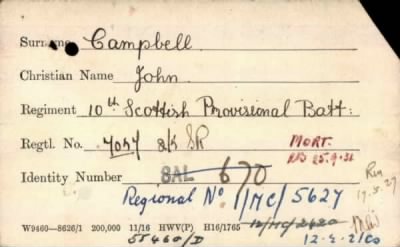 Surname Campbell
Christian Name John
Regiment 10th Scottish Provisional Batt:
Regtl. No. 7057 SR
MORT.
25.9.31
Identity Number 8AL 670
Regional No 1/MC/5627
W9460—8626/1 200,000 11/16 HWV(P) H16/1765
55460/D